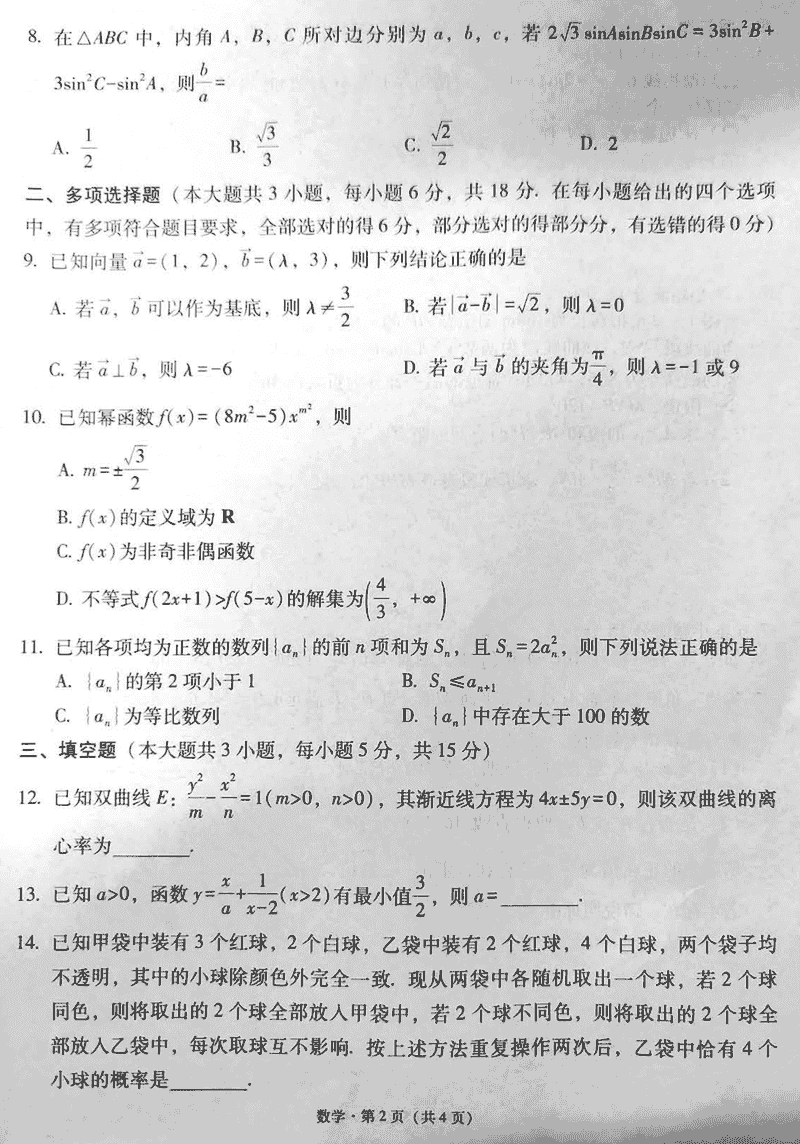 8. 在△ABC 中，内角 A，B，C 所对边分别为 a，b，c，若 2√3 sinAsinBsinC = 3sin²B+
3sin²C-sin²A，则 b/a =
A. 1/2 B. √3/3 C. √2/2 D. 2
二、多项选择题（本大题共 3 小题，每小题 6 分，共 18 分. 在每小题给出的四个选项
中，有多项符合题目要求，全部选对的得 6 分，部分选对的得部分分，有选错的得 0 分）
9. 已知向量 a⃗=(1，2)，b⃗=(λ，3)，则下列结论正确的是
A. 若 a⃗，b⃗ 可以作为基底，则 λ≠3/2 B. 若|a⃗-b⃗|=√2，则 λ=0
C. 若 a⃗⊥b⃗，则 λ=-6 D. 若 a⃗ 与 b⃗ 的夹角为 π/4，则 λ=-1 或 9
10. 已知幂函数 f(x)=(8m²-5)x^(m²)，则
A. m=±√3/2
B. f(x)的定义域为 R
C. f(x)为非奇非偶函数
D. 不等式 f(2x+1)>f(5-x)的解集为(4/3，+∞)
11. 已知各项均为正数的数列{aₙ}的前 n 项和为 Sₙ，且 Sₙ=2aₙ²，则下列说法正确的是
A. {aₙ}的第 2 项小于 1 B. Sₙ≤aₙ₊₁
C. {aₙ}为等比数列 D. {aₙ}中存在大于 100 的数
三、填空题（本大题共 3 小题，每小题 5 分，共 15 分）
12. 已知双曲线 E：y²/m-x²/n=1(m>0，n>0)，其渐近线方程为 4x±5y=0，则该双曲线的离
心率为________.
13. 已知 a>0，函数 y=x/a+1/(x-2)(x>2)有最小值 3/2，则 a=________.
14. 已知甲袋中装有 3 个红球，2 个白球，乙袋中装有 2 个红球，4 个白球，两个袋子均
不透明，其中的小球除颜色外完全一致. 现从两袋中各随机取出一个球，若 2 个球
同色，则将取出的 2 个球全部放入甲袋中，若 2 个球不同色，则将取出的 2 个球全
部放入乙袋中，每次取球互不影响. 按上述方法重复操作两次后，乙袋中恰有 4 个
小球的概率是________.
数学·第 2 页（共 4 页）